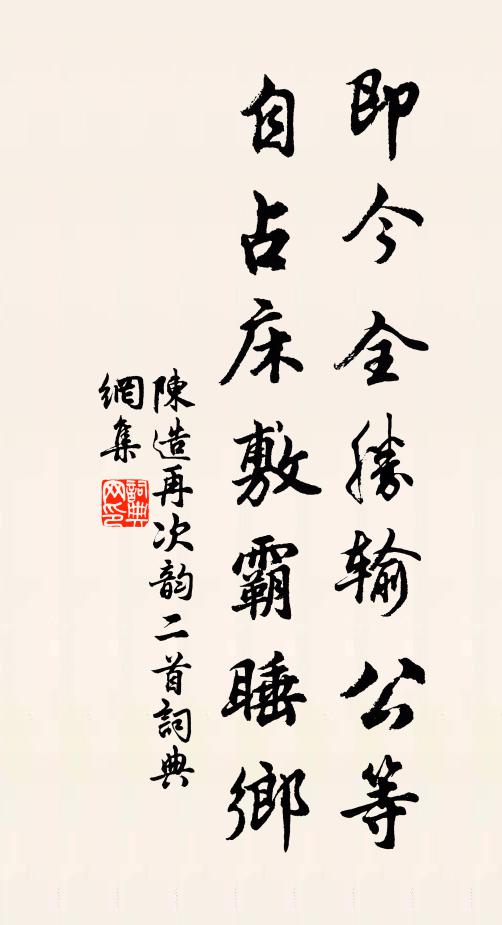 即今全勝輸公等
自占床敷霸睡鄉
陳造再次韵二首詞典
網集
詞典网印